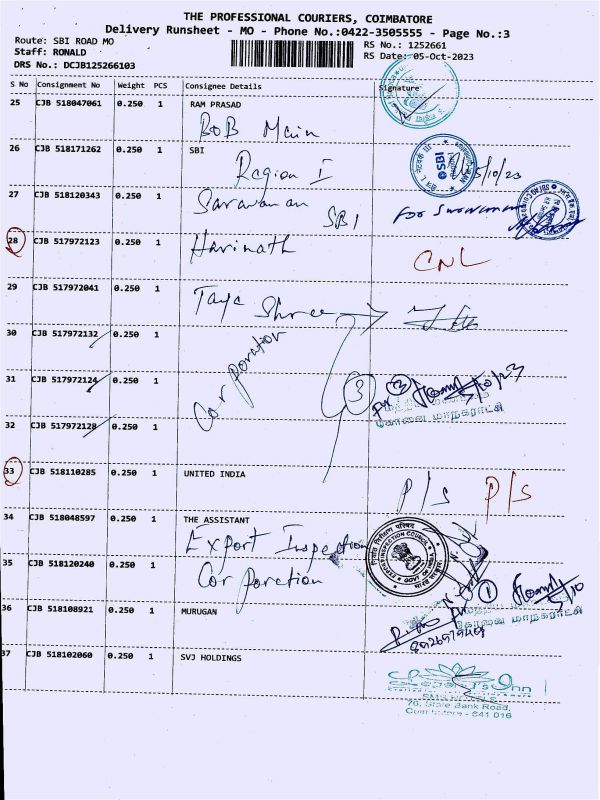 THE PROFESSIONAL COURIERS, COIMBATORE
Delivery Runsheet - MO - Phone No.:0422-3505555 - Page No.:3
Route: SBI ROAD MO
RS No.: 1252661
Staff: RONALD
RS Date: 05-Oct-2023
DRS No.: DCJB125266103
S No Consignment No Weight PCS Consignee Details Signature
25 CJB 518047061 0.250 1 RAM PRASAD
BOB Main
26 CJB 518171262 0.250 1 SBI
Region I
SBI
5/10/23
27 CJB 518120343 0.250 1 Saravanan
SBI
For
28 CJB 517972123 0.250 1 Harinath
CNL
29 CJB 517972041 0.250 1 Jaya Shree
30 CJB 517972132 0.250 1
Corporation
31 CJB 517972124 0.250 1
3
For 3
கோவை மாநகராட்சி
32 CJB 517972128 0.250 1
33 CJB 518110285 0.250 1 UNITED INDIA
P/S P/S
34 CJB 518048597 0.250 1 THE ASSISTANT
Export Inspection
EXPORT INSPECTION COUNCIL
GOVT OF INDIA
35 CJB 518120240 0.250 1 Corporation
1
5/10
36 CJB 518108921 0.250 1 MURUGAN
கோவை மாநகராட்சி
37 CJB 518102060 0.250 1 SVJ HOLDINGS
Inn
76, State Bank Road,
Coimbatore - 641 018